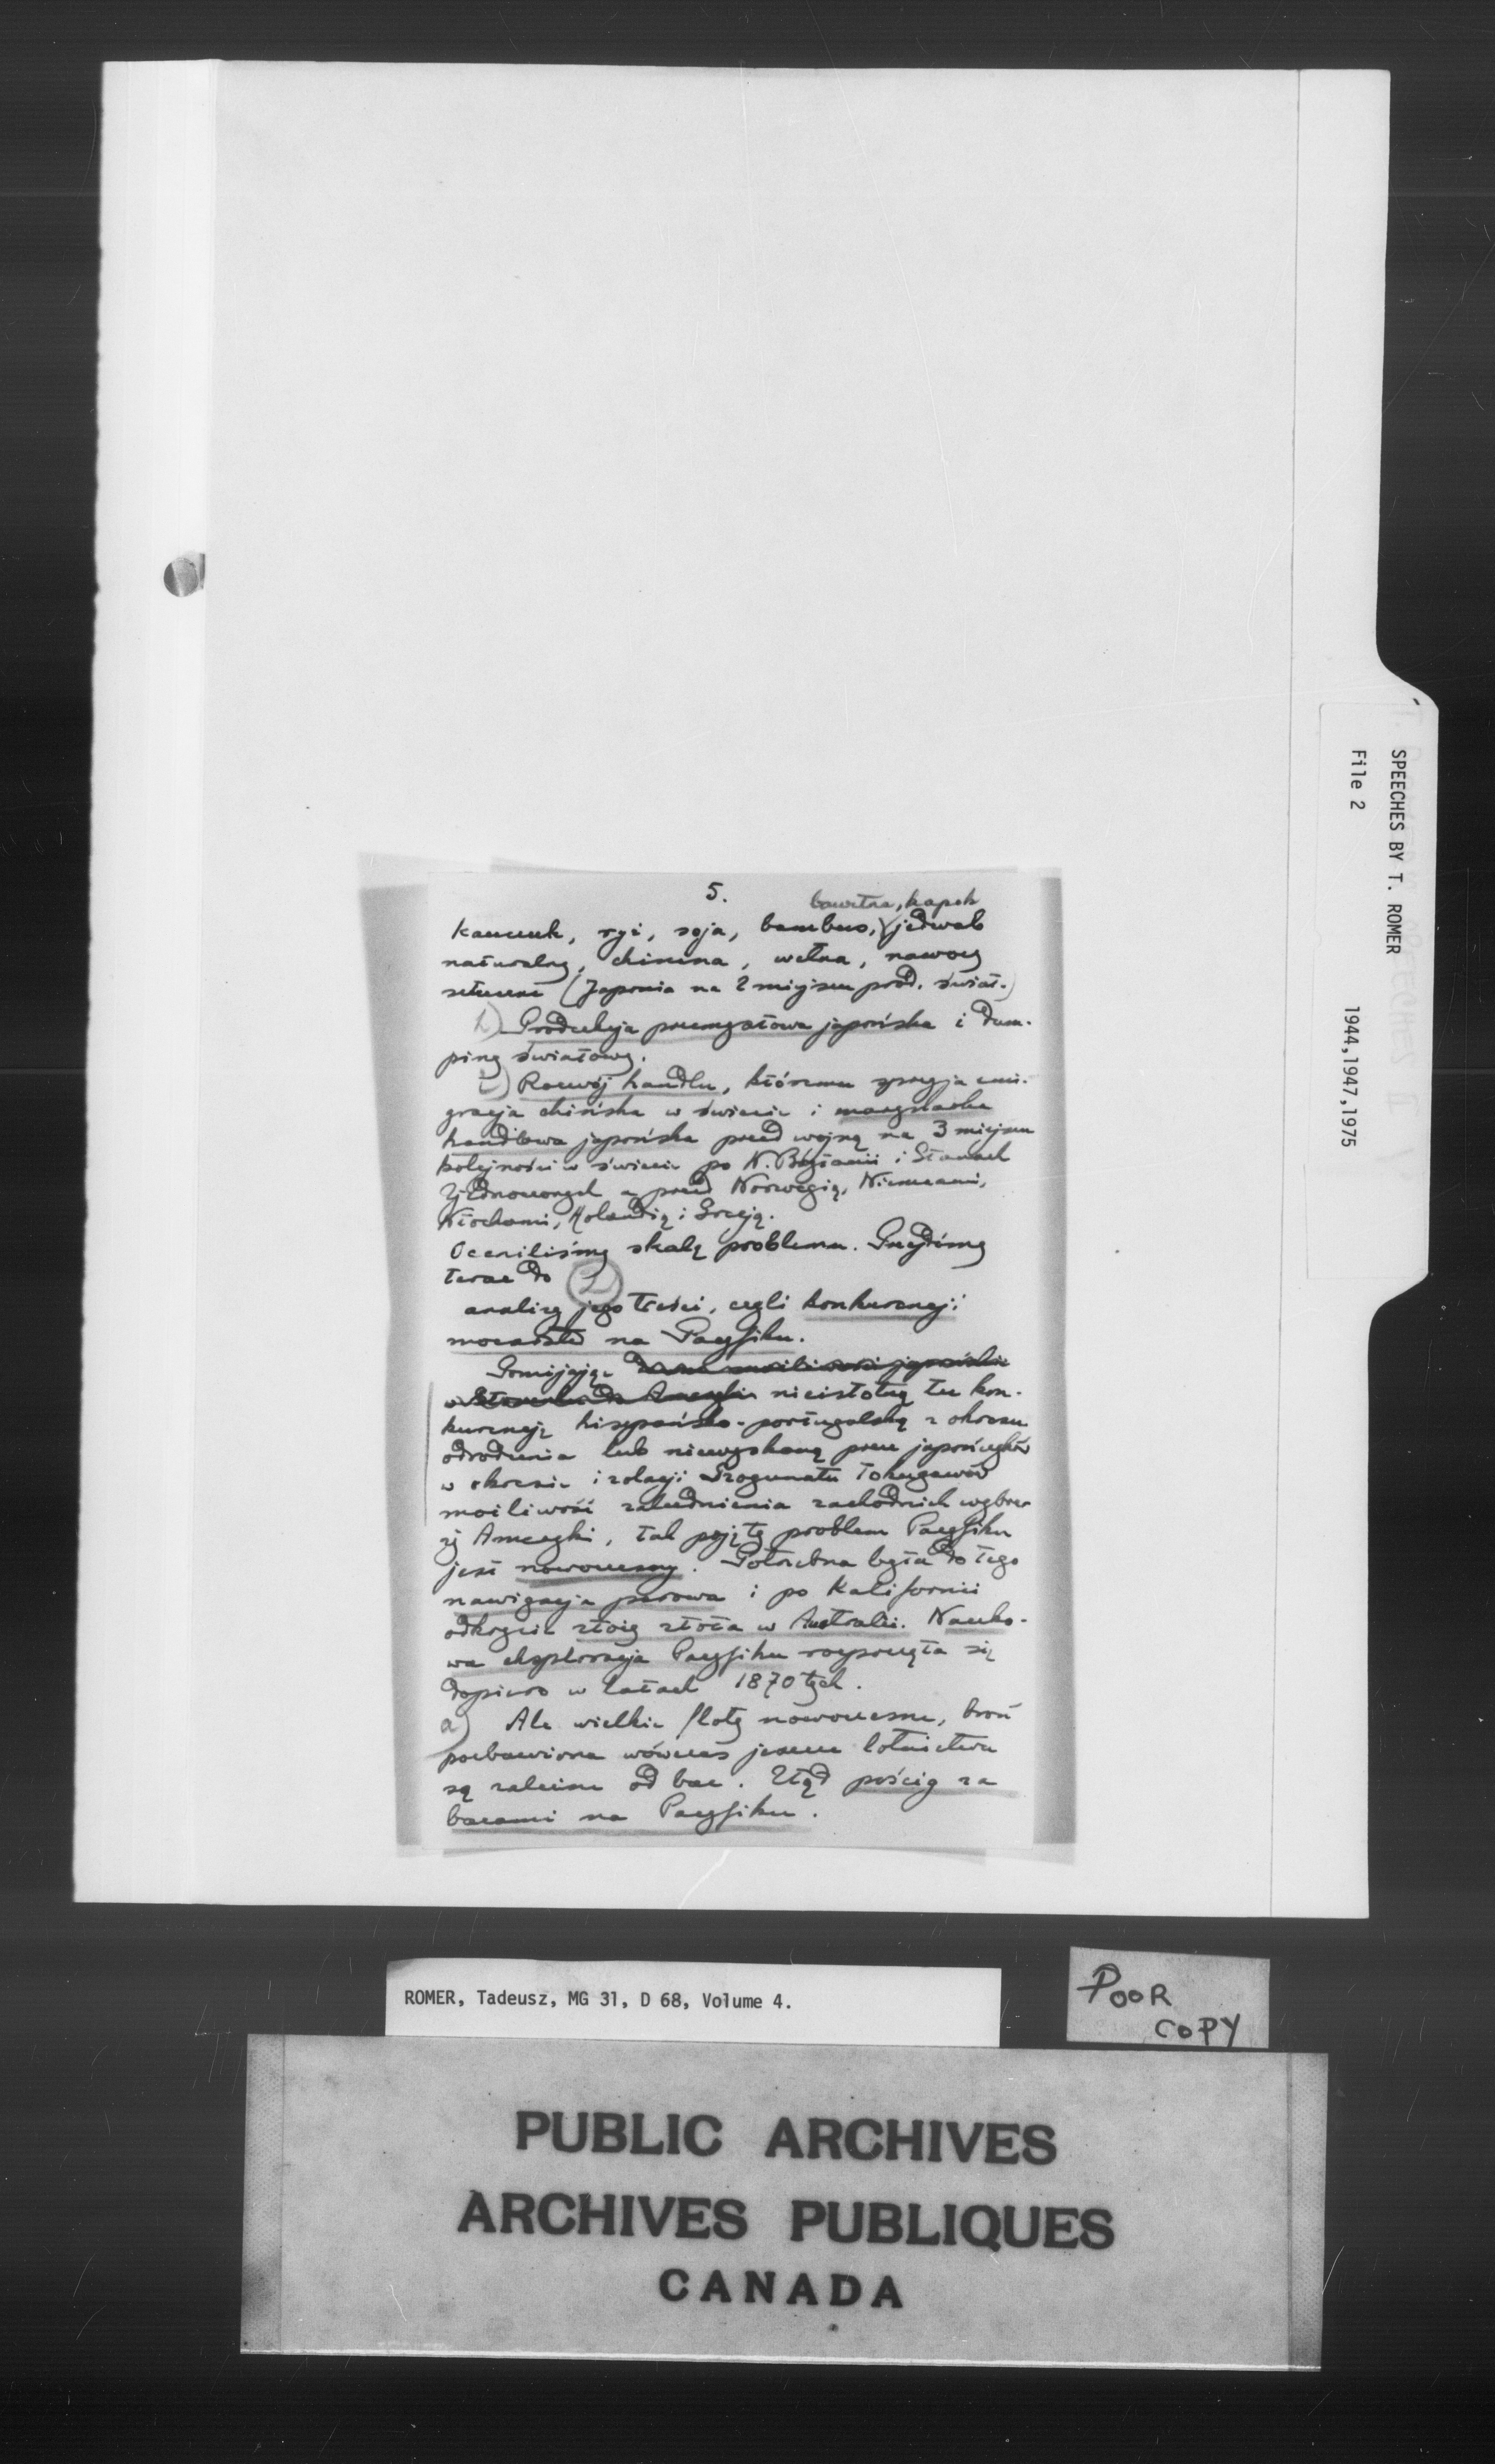 5.
bawełna, kapok
kauczuk, ryż, soja, bambus, jedwab
naturalny, chinina, wełna, nawozy
sztuczne (Japonia na 2 miejscu prod. świat.)
h) Produkcja przemysłowa japońska i dum-
ping światowy.
i) Rozwój handlu, któremu sprzyja emi-
gracja chińska w świecie i marynarka
handlowa japońska przed wojną na 3 miejscu
kolejności w świecie po W. Brytanii i Stanach
Zjednoczonych a przed Norwegią, Niemcami,
Włochami, Holandią i Grecją.
Oceniliśmy skalę problemu. Przejdźmy
teraz do
2
analizy jego treści, czyli konkurencji
mocarstw na Pacyfiku.
Pomijając
nieistotną tu kon-
kurencję hiszpańsko-portugalską z okresu
odrodzenia lub niewyzyskaną przez japończyków
w okresie izolacji Szogunatu Tokugawów
możliwość zaludnienia zachodnich wybrze-
ży Ameryki, tak pojęty problem Pacyfiku
jest nowoczesny. Potrzebna była do tego
nawigacja parowa i po Kalifornii
odkrycie złóż złota w Australii. Nauko-
wa eksploracja Pacyfiku rozpoczęła się
dopiero w latach 1870tych.
a) Ale wielkie floty nowoczesne, broń
pozbawiona wówczas jeszcze lotnictwa
są zależne od baz. Stąd pościg za
bazami na Pacyfiku.
SPEECHES BY T. ROMER
File 2 1944,1947,1975
ROMER, Tadeusz, MG 31, D 68, Volume 4.
POOR
COPY
PUBLIC ARCHIVES
ARCHIVES PUBLIQUES
CANADA